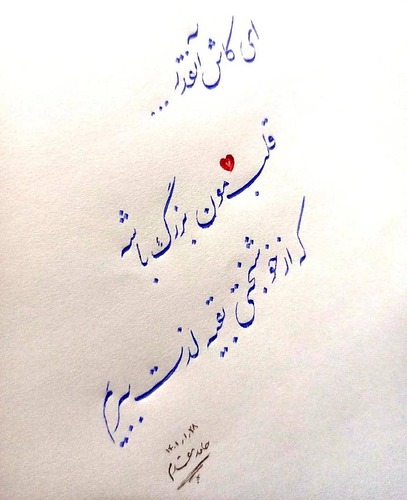 ای کاش آنقدر ...
قلبمون بزرگ باشه
که از خوشبختی بقیه لذت ببریم
۱۴۰۱,۱,۲۸
حامد مقدم